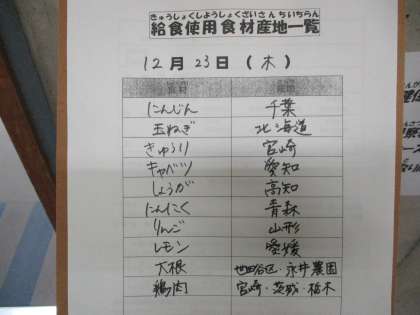 きゅうしょくしようしょくざいさんちいちらん
給食使用食材産地一覧
12月23日(木)
食材 産地
にんじん 千葉
玉ねぎ 北海道
きゅうり 宮崎
キャベツ 愛知
しょうが 高知
にんにく 青森
りんご 山形
レモン 愛媛
大根 世田谷区・永井農園
鶏肉 宮崎・茨城・栃木